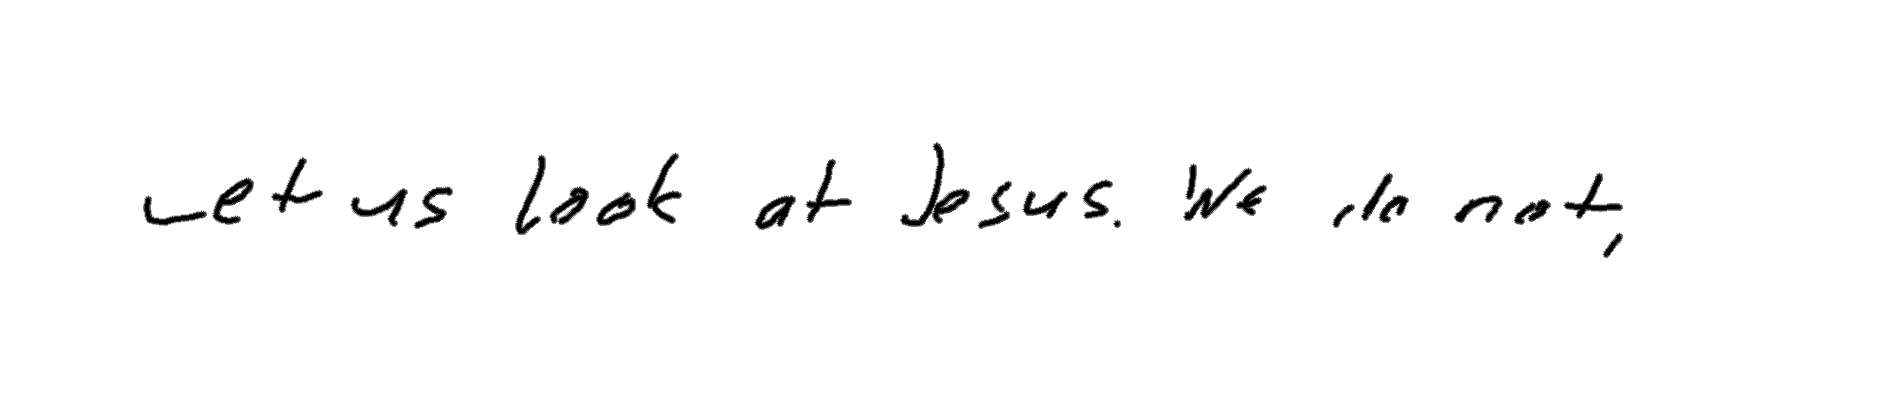 Let us look at Jesus. We do not,